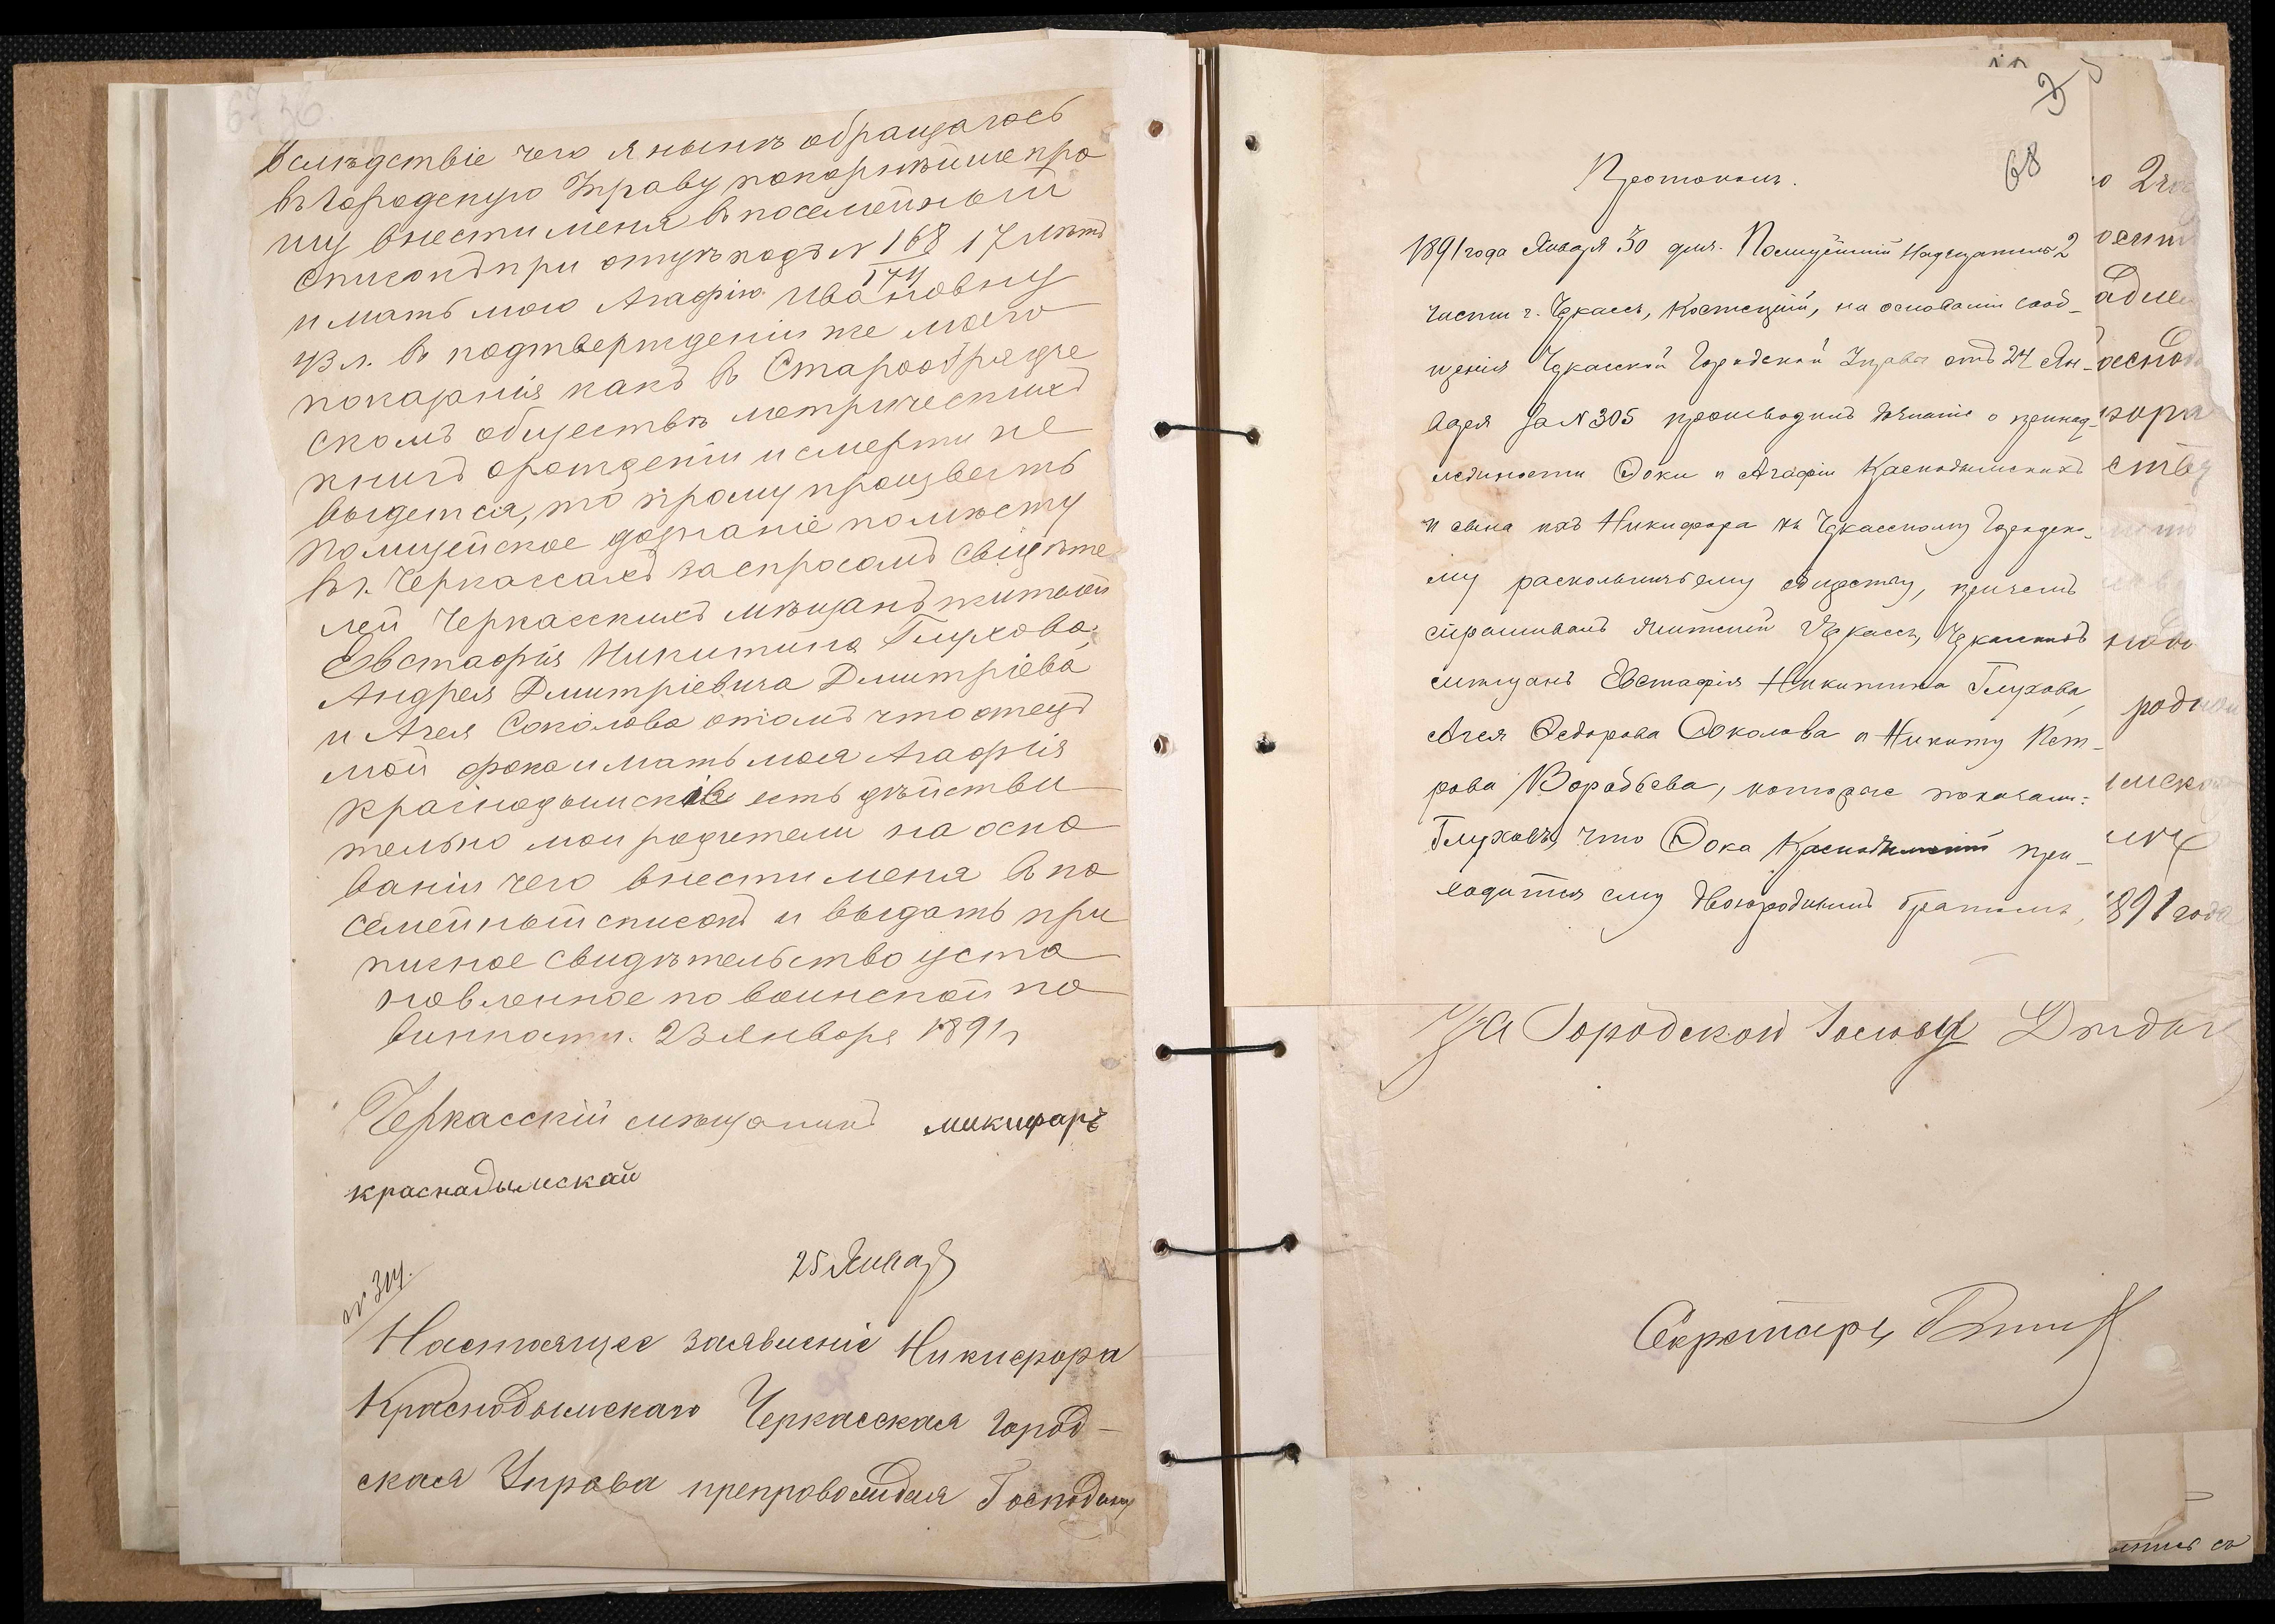 67 36
Вслѣдствіе чего я нынѣ обращаюсь
въ Городскую Управу покорнѣйше про
шу внести меня въ посемейный
списокъ при отцѣ подъ № 168/174 17 лѣтъ
и мать мою Агафію Ивановну
43 л. въ подтвержденіи же моего
показанія какъ въ Старообрядче
скомъ обществѣ метрическихъ
книгъ о рожденіи и смерти не
выдется, то прошу произвесть
полицейское дознаніе по мѣсту
въ г. Черкассахъ за спросомъ свидѣте
лей Черкасскихъ мѣщанъ жителей
Евстафія Никитина Глухова,
Андрея Дмитріевича Дмитріева
и Агея Соколова отомъ что отецъ
мой фока и мать моя Агафія
Краснодымскіе есть дѣйстви
тельно мои родители на осно
ваніи чего внести меня въ по
семейный списокъ и выдать при
писное свидѣтельство уста
новленное по воинской по
винности. 23 Января 1891 г
Черкасскій мѣщанинъ микифаръ
краснадымскай
25 Января
№ 314.
Настоящее заявленіе Никифора
Краснодымскаго Черкасская Город-
ская Управа препровождая Господину
68
Протоколъ.
1891 года Января 30 дня. Полицейскій Надзиратель 2
части г. Черкассъ, Костецкій, на основаніи сооб-
щенія Черкасской Городской Управы отъ 24 Ян-
варя за № 305 производилъ дознаніе о принад-
лежности Фоки и Агафіи Краснодымскихъ
и сына ихъ Никифора къ Черкасскому Городско-
му раскольничьему обществу, причемъ
спрашивалъ жителей Черкассъ, Черкасскихъ
мѣщанъ Евстафія Никитина Глухова,
Агея Федорова Соколова и Никиту Пет-
рова Воробьева, которые показали:
Глуховъ, что Фока Краснодымскій при-
ходится ему двоюроднымъ братомъ,
родской
891 года
За Городской Голова
Секретарь